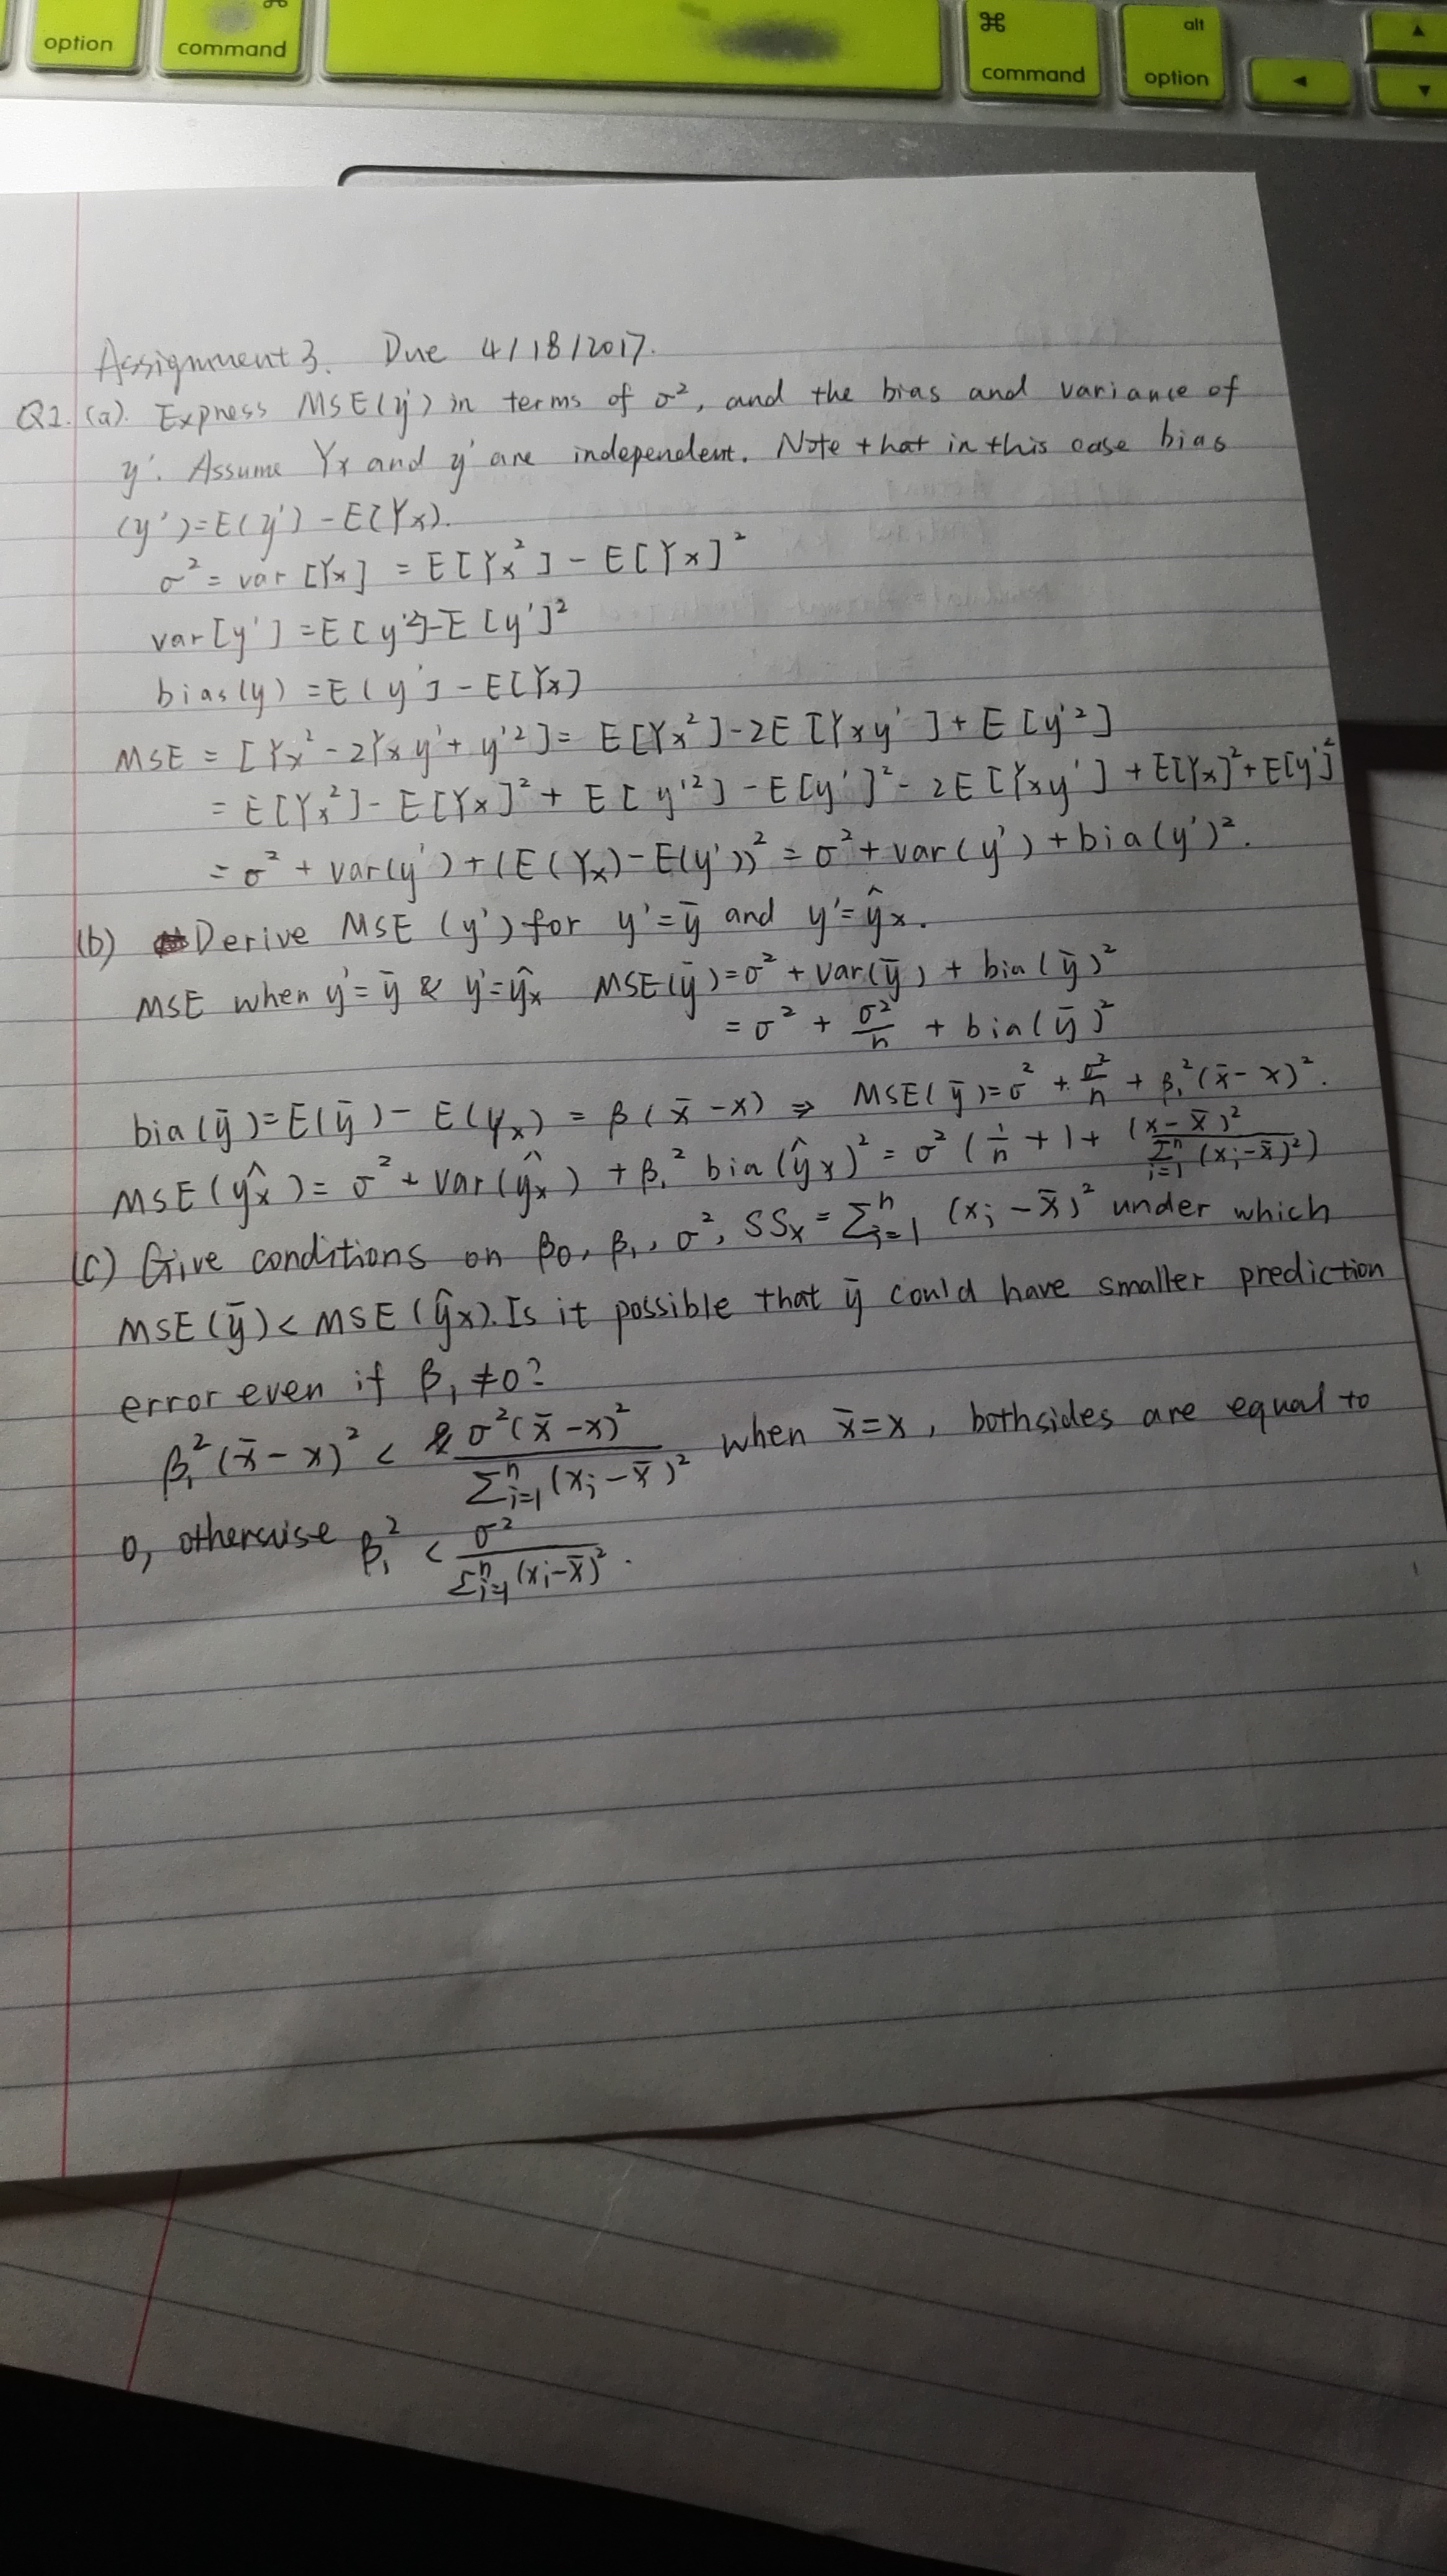 option
command
⌘
command
alt
option
Assignment 3. Due 4/18/2017.
Q1. (a). Express MSE(y') in terms of σ², and the bias and variance of
y'. Assume Yx and y' are independent. Note that in this case bias
(y')=E(y')-E[Yx).
σ² = var [Yx] = E[Yx²] - E[Yx]²
var[y'] = E[y'²]-E[y']²
bias(y) = E(y'] - E[Yx]
MSE = [Yx² - 2Yxy' + y'²] = E[Yx²]-2E[Yxy'] + E[y'²]
= E[Yx²] - E[Yx]² + E[y'²] - E[y']² - 2E[Yxy'] + E[Yx]²+E[y']²
= σ² + var(y') + (E(Yx)-E(y'))² = σ² + var(y') + bia(y')².
(b) Derive MSE (y') for y'=ȳ and y'=ŷx.
MSE when y'=ȳ & y'=ŷx MSE(ȳ)=σ² + var(ȳ) + bia(ȳ)²
= σ² + σ²/n + bia(ȳ)²
bia(ȳ)=E(ȳ)-E(yx) = β(x̄-x) ⇒ MSE(ȳ)=σ² + σ²/n + β₁²(x̄-x)².
MSE(ŷx)= σ² + var(ŷx) + β₁² bia(ŷx)² = σ²(1/n + 1 + (x-x̄)²/Σⁿᵢ₌₁(xᵢ-x̄)²)
(c) Give conditions on β0, β₁, σ², SSx = Σⁿᵢ₌₁ (xᵢ-x̄)² under which
MSE(ȳ) < MSE(ŷx). Is it possible that ȳ could have smaller prediction
error even if β₁ ≠0?
β₁²(x̄-x)² < σ²(x̄-x)²/Σⁿᵢ₌₁(xᵢ-x̄)² when x̄=x, bothsides are equal to
0, otherwise β₁² < σ²/Σⁿᵢ₌₁(xᵢ-x̄)².